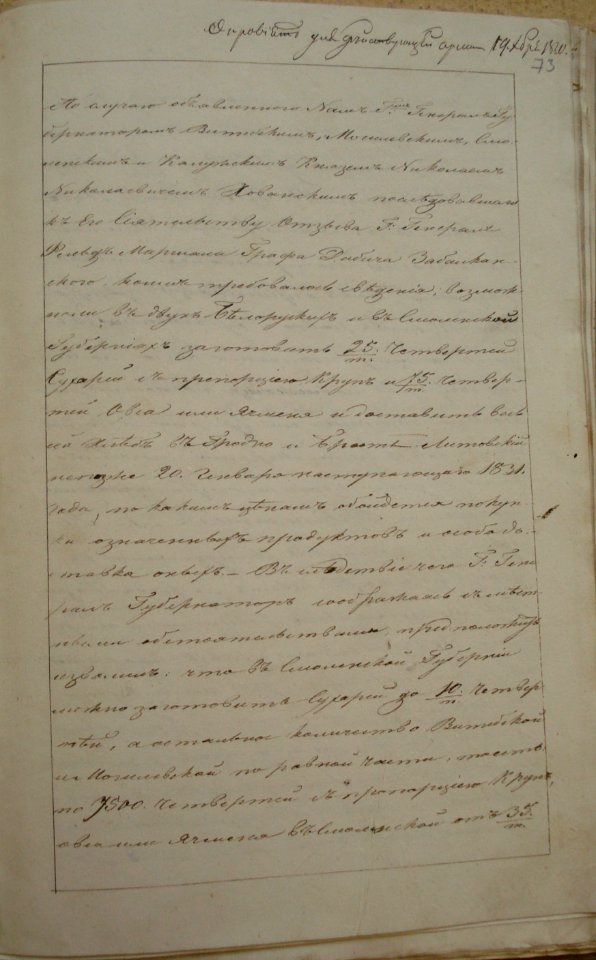 О провіантѣ для дѣйствующей арміи 19. Хбря 1830.
73
По случаю объявленного Намъ Гмъ Генералъ Гу
бернаторомъ Витебскимъ, Могилевскимъ, Смо
ленскимъ и Калужскимъ Княземъ Николаемъ
Николаевичемъ Хованскимъ последовавшаго
къ Его Сіятельству Отзыва Г. Генерала
Фельдъ Маршала Графа Дибича Забалкан-
ского, коимъ требовалось свѣдѣнія: возмож
но ли въ двухъ Бѣлорускихъ и въ Смоленской
Губерніяхъ заготовить 25/т. Четвертей
Сухарей съ пропорціею Крупъ и 75/т. Четвер-
тей Овса или Ячменя и доставить весь
сей хлѣбъ въ Гродно и Брестъ Литовскій
непозже 20. Генваря наступающаго 1831.
года, по какимъ цѣнамъ обойдется покуп-
ка означенныхъ продуктовъ и особо до-
ставка оныхъ. – Въ слѣдствіе чего Г. Гене
ралъ Губернаторъ соображаясь съ мѣст-
ными обстоятельствами, предположить
изволилъ: что въ Смоленской Губерніи
можно заготовить Сухарей до 10/т. Четвер
тей, а остальное количество Витебской
и Могилевской по равной части, то есть
по 7500. Четвертей съ пропорціею Крупъ,
овса или Ячменя въ Смоленской отъ 35/т.